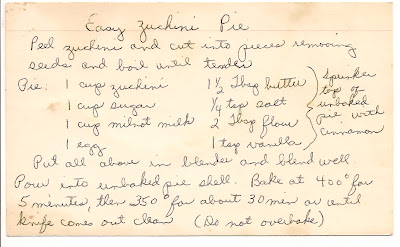 Easy Zuchini Pie
Peel zuchini and cut into pieces removing
seeds and boil until tender
Pie: 1 cup zuchini 1 1/2 Tbsp butter
1 cup sugar 1/4 tsp salt
1 cup milnot milk 2 Tbsp flour
1 egg 1 tsp vanilla
Sprinkle
top of
unbaked
pie with
cinnamon
Put all above in blender and blend well.
Pour into unbaked pie shell. Bake at 400° for
5 minutes, then 350° for about 30 min or until
knife comes out clean (Do not overbake)